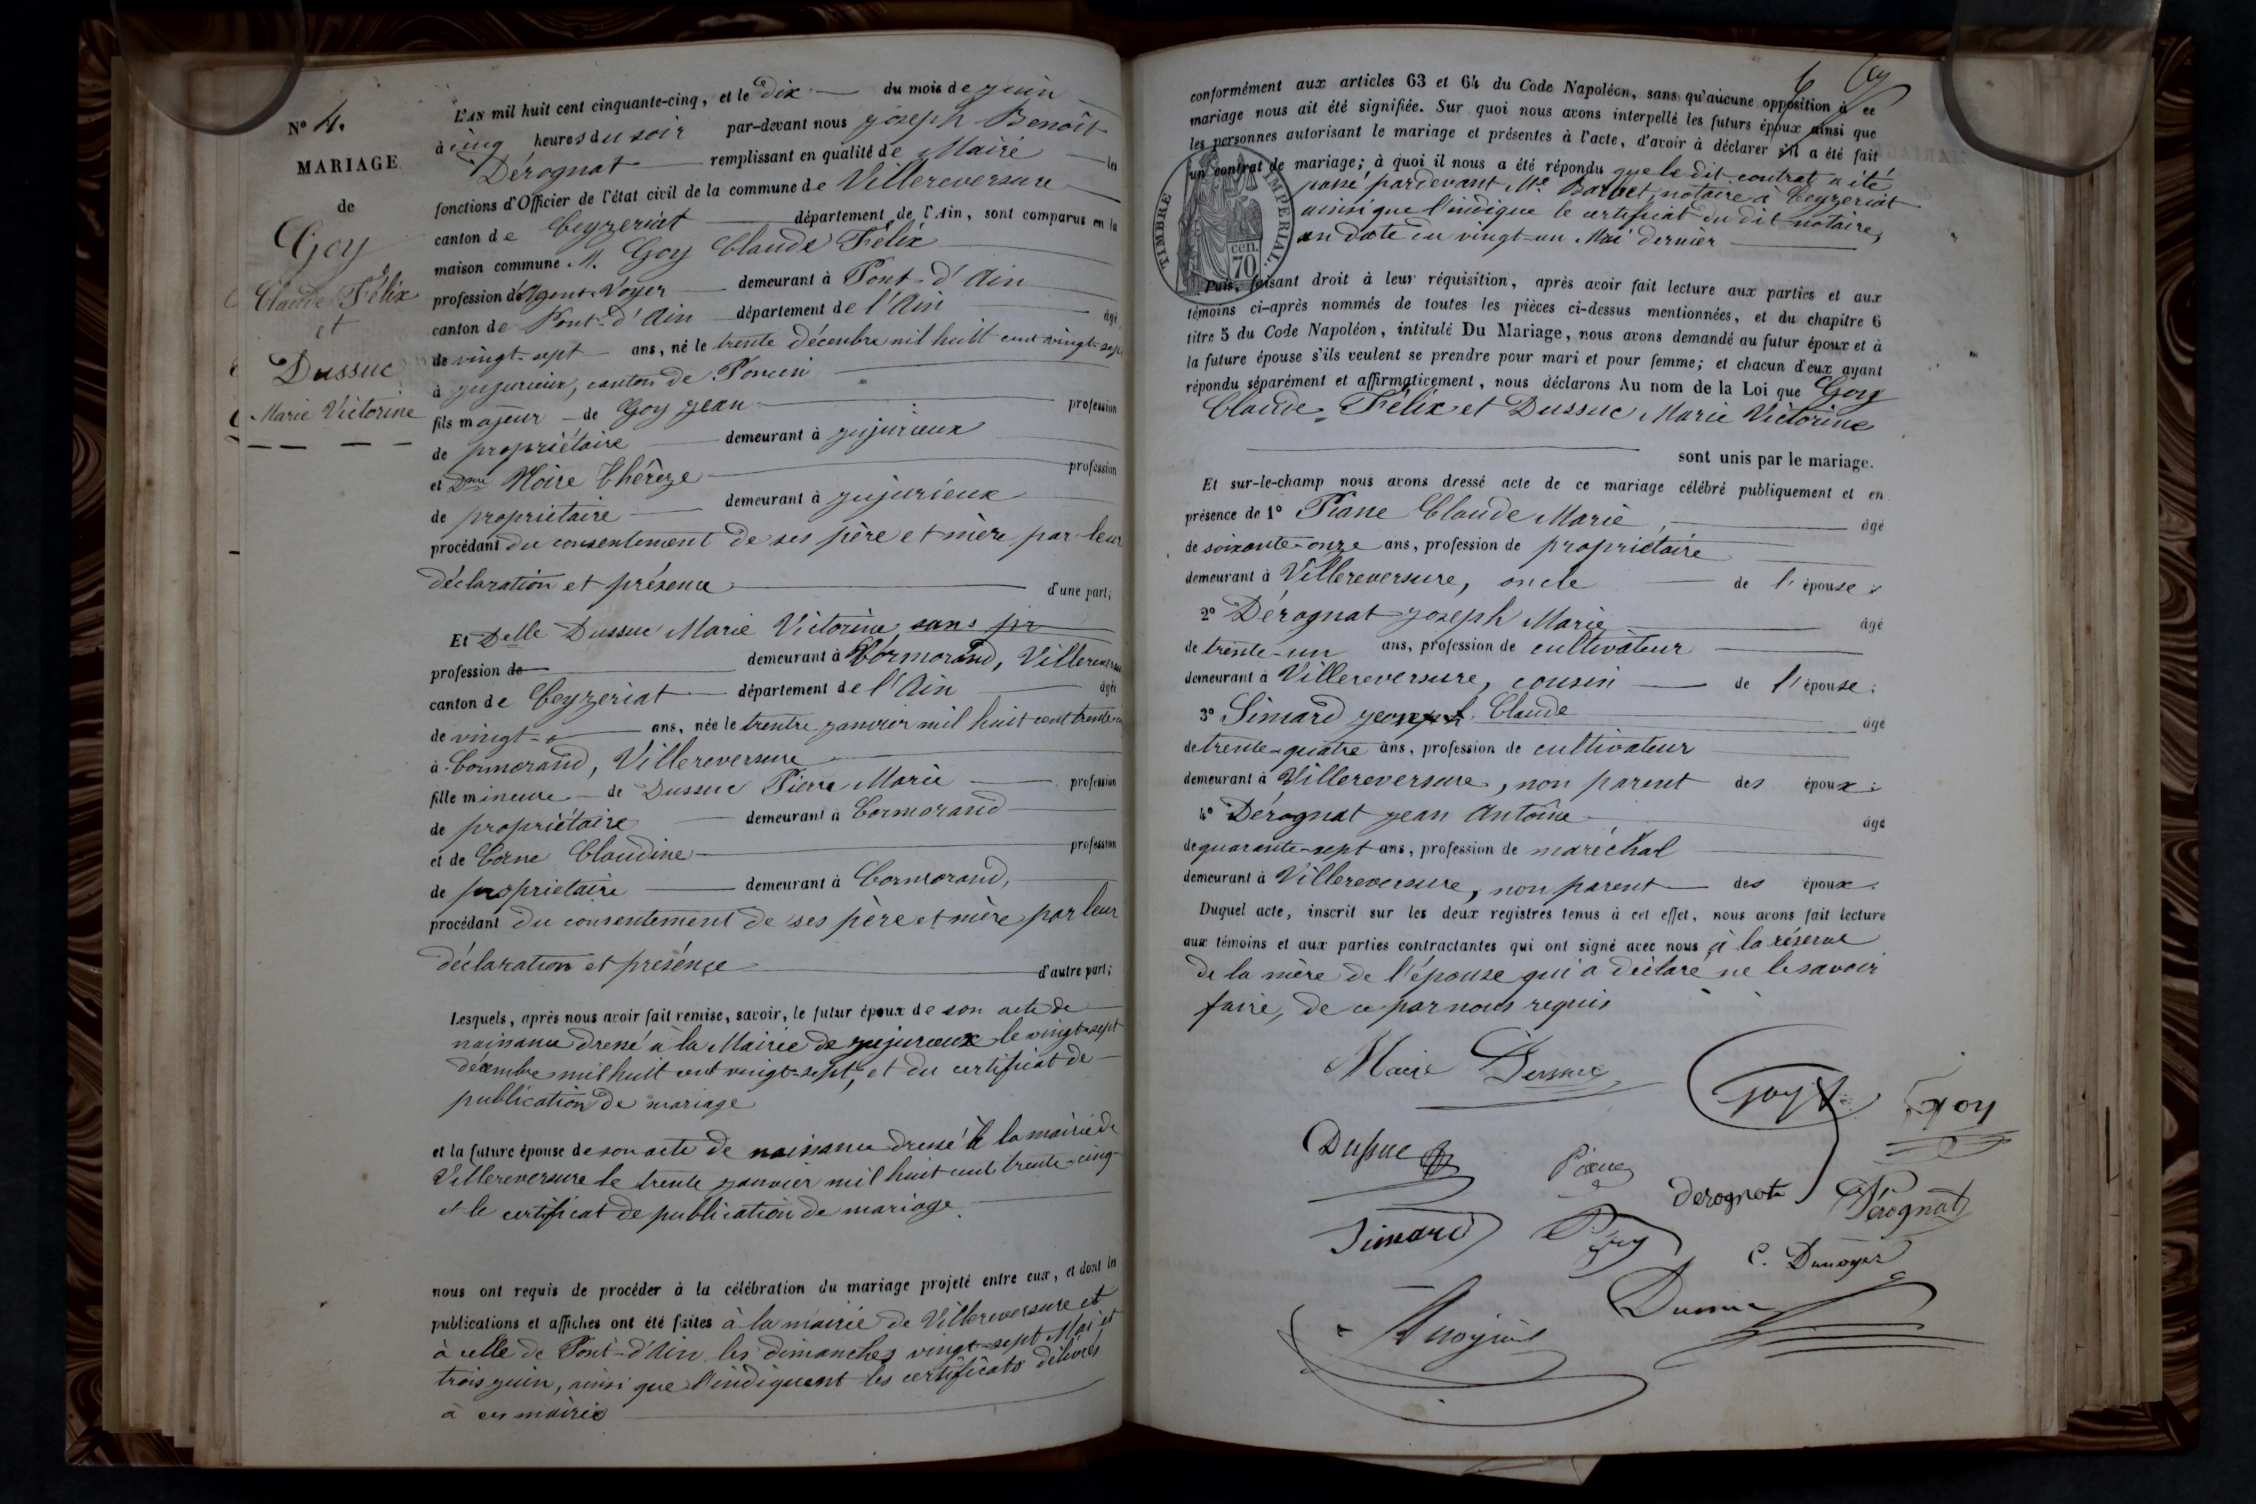 N° 4.
MARIAGE
de
Goy
Claude Félix
et
Dussuc
Marie Victorine
L'AN mil huit cent cinquante-cinq, et le dix du mois de juin
à cinq heures du soir par-devant nous joseph Benoît
Dérognat remplissant en qualité de Maire les
fonctions d'Officier de l'état civil de la commune de Villereversure
canton de Ceyzeriat département de l'Ain, sont comparus en la
maison commune M. Goy Claude Félix
profession d'Agent-Voyer demeurant à Pont-d'Ain
canton de Pont-d'Ain département de l'Ain âgé
de vingt-sept ans, né le trente décembre mil huit cent vingt-sept
à jujurieux, canton de Poncin
fils majeur de Goy jean profession
de propriétaire demeurant à jujurieux
et Dme Noire Thérèze profession
de propriétaire demeurant à jujurieux
procédant du consentement de ses père et mère par leur
déclaration et présence d'une part;
Et Delle Dussuc Marie Victorine sans pr
profession de demeurant à Cormorand, Villereversure
canton de Ceyzeriat département de l'Ain âgée
de vingt ans, née le trentre janvier mil huit cent trente-cinq
à Cormorand, Villereversure
fille mineure de Dussuc Pierre Marie profession
de propriétaire demeurant à Cormorand
et de Corne Claudine profession
de propriétaire demeurant à Cormorand,
procédant du consentement de ses père et mère par leur
déclaration et présence d'autre part;
Lesquels, après nous avoir fait remise, savoir, le futur époux de son acte de
naissance dressé à la Mairie de jujurieux le vingt-sept
décembre mil huit cent vingt-sept, et du certificat de
publication de mariage
et la future épouse de son acte de naissance dressé à la mairie de
Villereversure le trente janvier mil huit cent trente-cinq
et le certificat de publication de mariage.
nous ont requis de procéder à la célébration du mariage projeté entre eux, et dont les
publications et affiches ont été faites à la mairie de Villereversure et
à celle de Pont-d'Ain les dimanches vingt-sept Mai et
trois juin, ainsi que l'indiquent les certificats délivrés
à ces mairies
conformément aux articles 63 et 64 du Code Napoléon, sans qu'aucune opposition à ce
mariage nous ait été signifiée. Sur quoi nous avons interpellé les futurs époux ainsi que
les personnes autorisant le mariage et présentes à l'acte, d'avoir à déclarer s'il a été fait
un contrat de mariage; à quoi il nous a été répondu que le dit contrat a été
passé pardevant Me notaire à Ceyzeriat
ainsi que l'indique le certificat du dit notaire,
en date du vingt-un Mai dernier
TIMBRE IMPERIAL.
70 cen.
Puis, faisant droit à leur réquisition, après avoir fait lecture aux parties et aux
témoins ci-après nommés de toutes les pièces ci-dessus mentionnées, et du chapitre 6
titre 5 du Code Napoléon, intitulé Du Mariage, nous avons demandé au futur époux et à
la future épouse s'ils veulent se prendre pour mari et pour femme; et chacun d'eux ayant
répondu séparément et affirmativement, nous déclarons Au nom de la Loi que Goy
Claude Félix et Dussuc Marie Victorine
sont unis par le mariage.
Et sur-le-champ nous avons dressé acte de ce mariage célébré publiquement et en
présence de 1° Piane Claude Marie, âgé
de soixante-onze ans, profession de propriétaire
demeurant à Villereversure, oncle de l'épouse;
2° Dérognat joseph Marie âgé
de trente-un ans, profession de cultivateur
demeurant à Villereversure, cousin de l'épouse;
3° Simard joseph Claude âgé
de trente-quatre ans, profession de cultivateur
demeurant à Villereversure, non parent des époux;
4° Dérognat jean Antoine âgé
de quarante-sept ans, profession de maréchal
demeurant à Villereversure, non parent des époux.
Duquel acte, inscrit sur les deux registres tenus à cet effet, nous avons fait lecture
aux témoins et aux parties contractantes qui ont signé avec nous à la réserve
de la mère de l'épouse qui a déclaré ne le savoir
faire, de ce par nous requis
Marie Dussuc
Goy Goy
Dussuc
Derognat Dérognat
Simard
C. Dunoyer
Dussuc